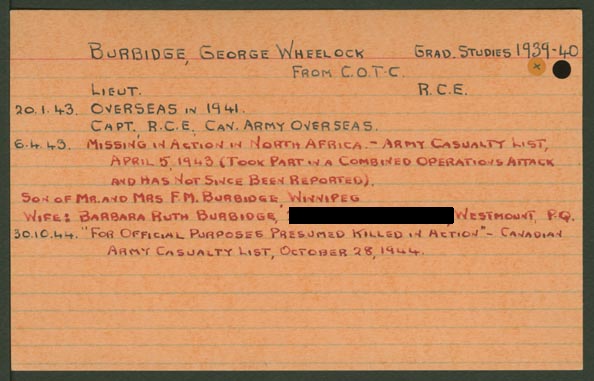 BURBIDGE, GEORGE WHEELOCK GRAD. STUDIES 1939-40
FROM C.O.T.C.
LIEUT. R.C.E.
20.1.43. OVERSEAS IN 1941.
CAPT. R.C.E. CAN. ARMY OVERSEAS.
6.4.43. MISSING IN ACTION IN NORTH AFRICA. - ARMY CASUALTY LIST,
APRIL 5, 1943 (TOOK PART IN A COMBINED OPERATIONS ATTACK
AND HAS NOT SINCE BEEN REPORTED).
SON OF MR. AND MRS F.M. BURBIDGE, WINNIPEG
WIFE: BARBARA RUTH BURBIDGE, WESTMOUNT, P.Q.
30.10.44. "FOR OFFICIAL PURPOSES PRESUMED KILLED IN ACTION" - CANADIAN
ARMY CASUALTY LIST, OCTOBER 28, 1944.